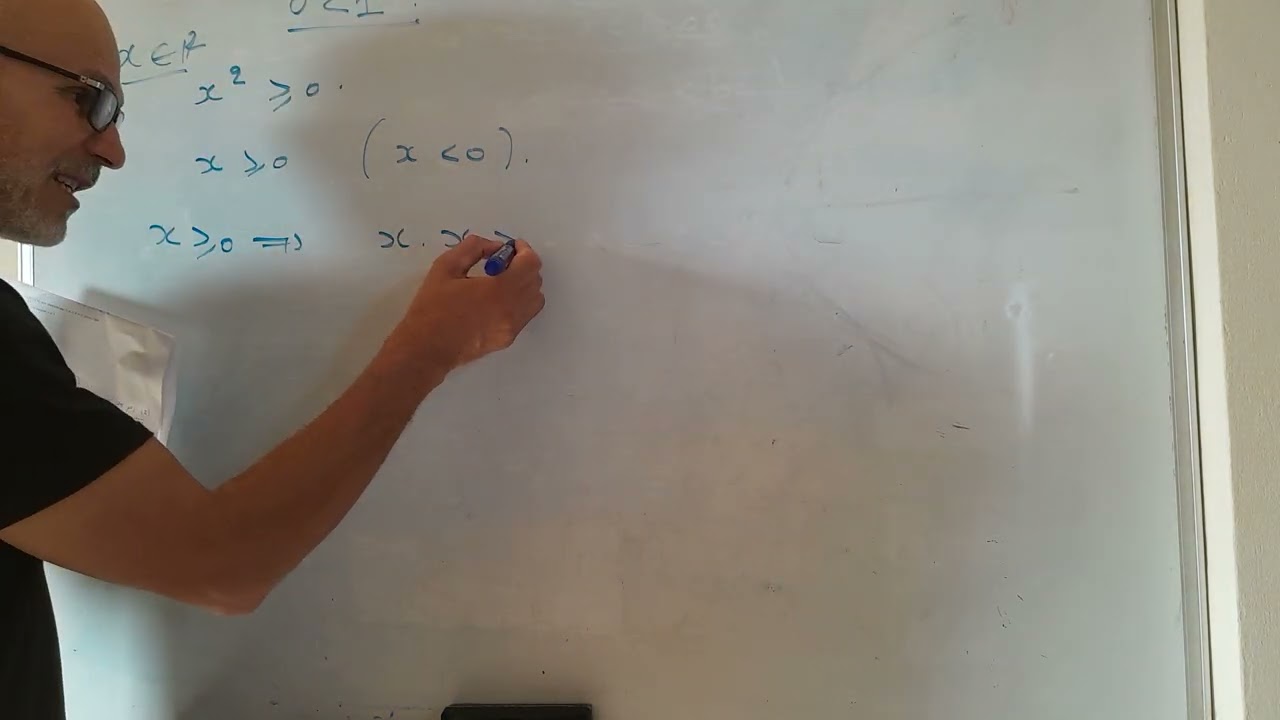 0 < 1 .
x ∈ ℝ
x² ⩾ 0 .
x ⩾ 0 ( x < 0 ) .
x ⩾ 0 ⇒ x . x >